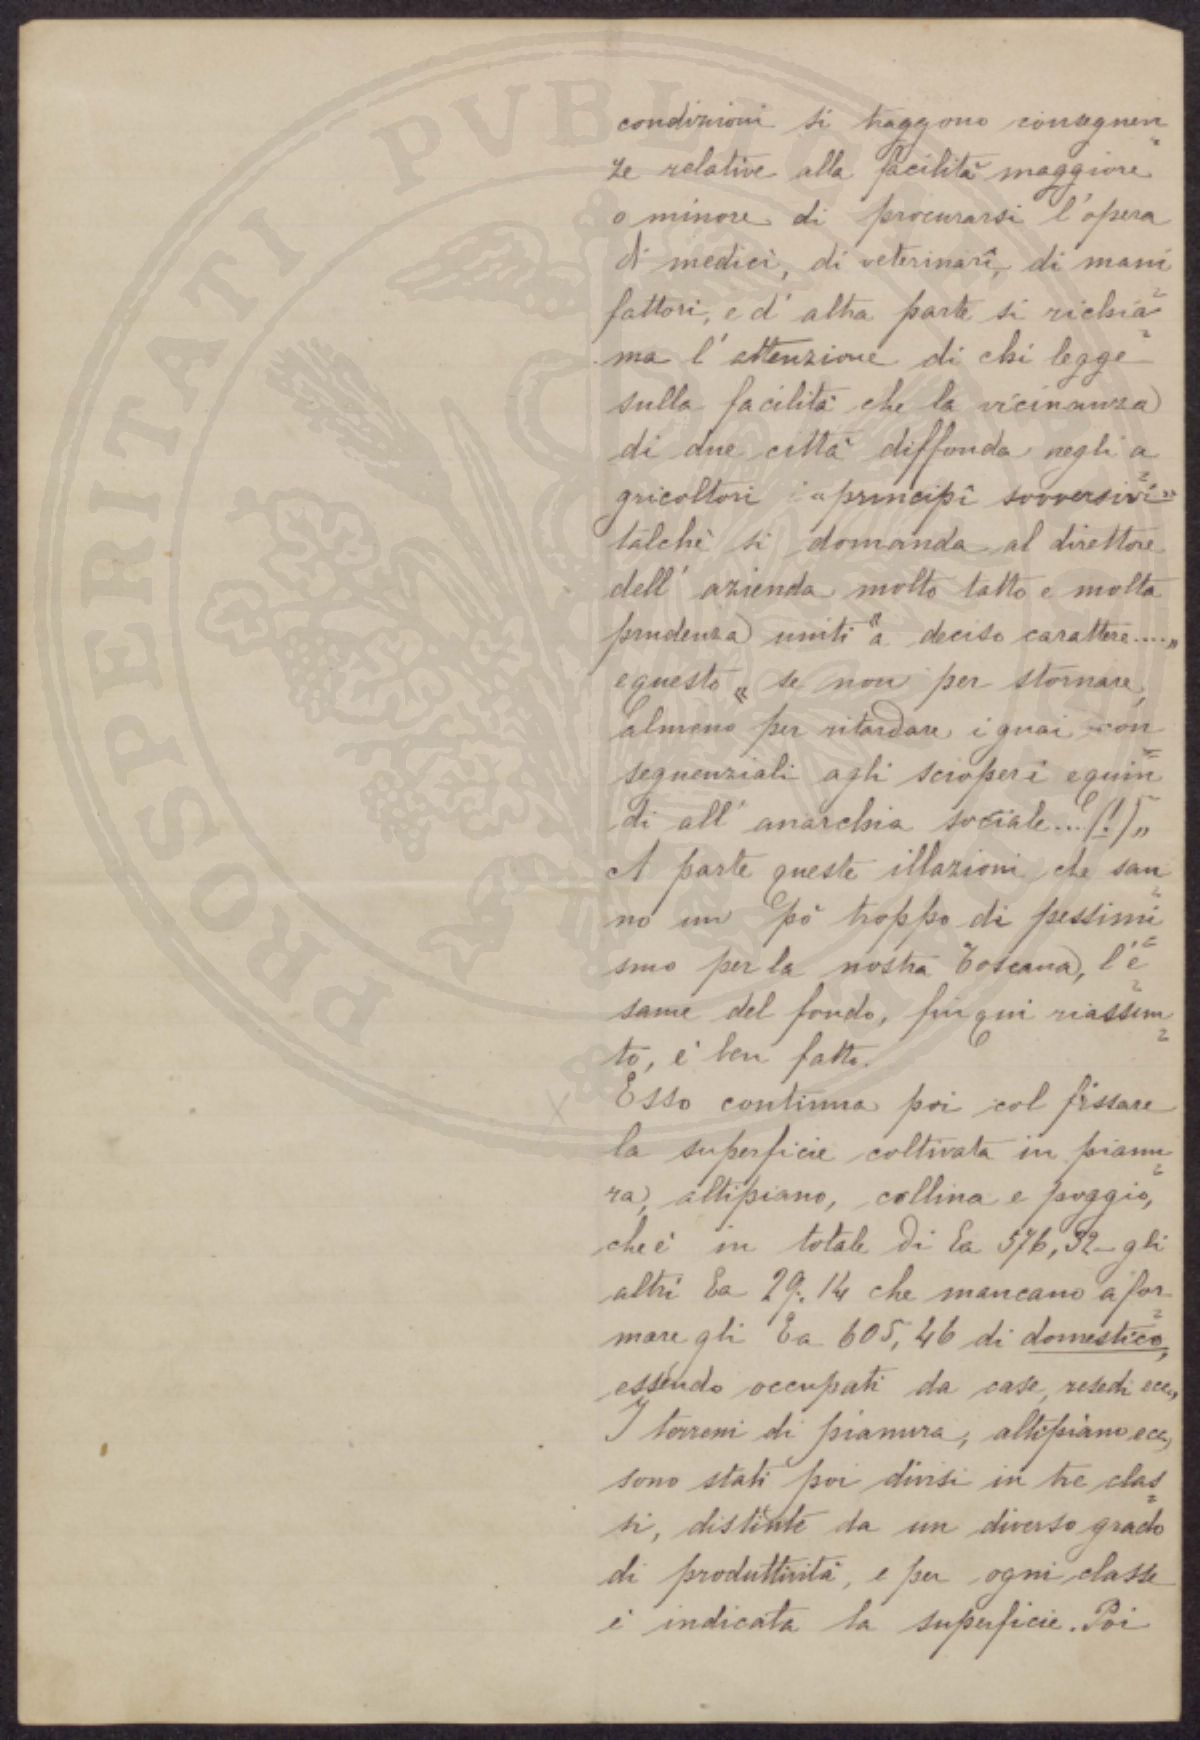 condizioni si traggono conseguen=
ze relative alla facilità maggiore
o minore di procurarsi l'opera
di medici, di veterinari, di mani
fattori, e d'altra parte si richia=
ma l'attenzione di chi legge
sulla facilità che la vicinanza
di due città diffonda negli a=
gricoltori i "principî sovversivi"
talchè si domanda al direttore
dell'azienda molto tatto e molta
prudenza uniti "a deciso carattere....„
e questo "se non per stornare,
almeno per ritardare i guai con=
seguenziali agli scioperi e quin=
di all'anarchia sociale...(!)„
A parte queste illazioni che san=
no un pò troppo di pessimi=
smo per la nostra Toscana, l'e=
same del fondo, fin qui riassun=
to, è ben fatto.
Esso continua poi col fissare
la superficie coltivata in pianu=
ra, altipiano, collina e poggio,
che è in totale di Ea 576,32 - gli
altri Ea 29.14 che mancano a for=
mare gli Ea 605,46 di domestico,
essendo occupati da case, resedi ecc,,
I terreni di pianura, altipiano ecc,
sono stati poi divisi in tre clas=
si, distinte da un diverso grado
di produttività, e per ogni classe
è indicata la superficie. Poi
PROSPERITATI PVBLICAE